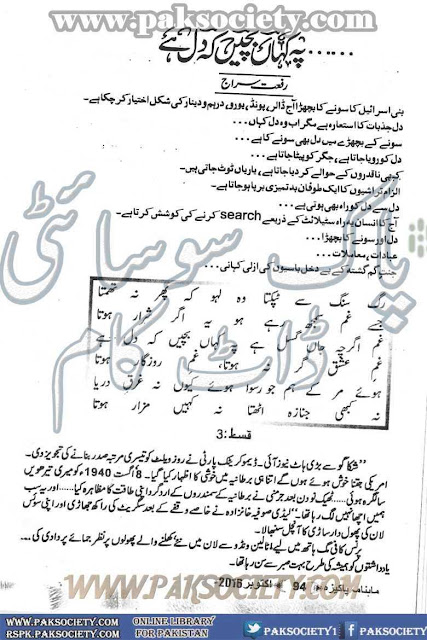 www.paksociety.com
...... پہ کہاں بچیں کہ دل ہے
رفعت سراج
بنی اسرائیل کا سونے کا بچھڑا آج ڈالر، پونڈ، یورو، درہم و دینار کی شکل اختیار کر چکا ہے۔
دل جذبات کا استعارہ ہے مگر اب وہ دل کہاں...
سونے کے بچھڑے میں دل بھی سونے کا ہے...
دل کو رویا جاتا ہے، جگر کو پیٹا جاتا ہے...
کبھی ناقدروں کے حوالے کر دیا جاتا ہے، یاریاں ٹوٹ جاتی ہیں۔
الزام تراشیوں کا ایک طوفان بدتمیزی برپا ہو جاتا ہے۔
دل سے دل کو راہ بھی ہوتی ہے...
آج کا انسان یہ راہ سٹیلائٹ کے ذریعے search کرنے کی کوشش کرتا ہے۔
دل اور سونے کا بچھڑا...
عبادات، معاملات...
جنتِ گم گشتہ کے بے دخل باسیوں کی ازلی کہانی...
پاک سوسائٹی
ڈاٹ کام
رگِ سنگ سے ٹپکتا وہ لہو کہ پھر نہ تھمتا
جسے غم سمجھ رہے ہو یہ اگر شرار ہوتا
غم اگرچہ جاں گسل ہے پہ کہاں بچیں کہ دل ہے
غم عشق گر نہ ہوتا، غم روزگار ہوتا
ہوئے مر کے ہم جو رسوا ہوئے کیوں نہ غرق دریا
نہ کبھی جنازہ اٹھتا نہ کہیں مزار ہوتا
قسط: 3
"شکاگو سے بڑی ہاٹ نیوز آئی۔ ڈیموکریٹک پارٹی نے روز ویلٹ کو تیسری مرتبہ صدر بنانے کی تجویز دی۔
امریکی جتنا خوش ہوئے ہوں گے اتنا ہی برطانیہ میں خوشی کا اظہار کیا گیا۔ 8 اگست 1940ء کو میری تیرھویں
سالگرہ ہوئی..... ٹھیک دو دن بعد جرمنی نے برطانیہ کے سمندروں کے اردگرد اپنی طاقت کا مظاہرہ کیا...... اور یہ سب
ہمیں اچھا نہیں لگ رہا تھا۔" لیڈی صوفیہ خانزادہ نے خاصے وقفے کے بعد سگریٹ کی راکھ جھاڑی اور اپنی سوئس
لان کی پھول دار ساڑی کا آنچل سنبھالا۔
پرنس کافی مگ ہاتھ میں لیے اٹالین ونڈو سے لان میں نئے کھلنے والے پھولوں پر نظر جمائے پر دادی کی
یادداشتوں کو ہمیشہ کی طرح بہت صبر سے سن رہا تھا۔
ماہنامہ پاکیزہ 94 اکتوبر 2016ء
WWW.PAKSOCIETY.COM
WWW.PAKSOCIETY.COM
RSPK.PAKSOCIETY.COM
ONLINE LIBRARY
FOR PAKISTAN
PAKSOCIETY1
PAKSOCIETY